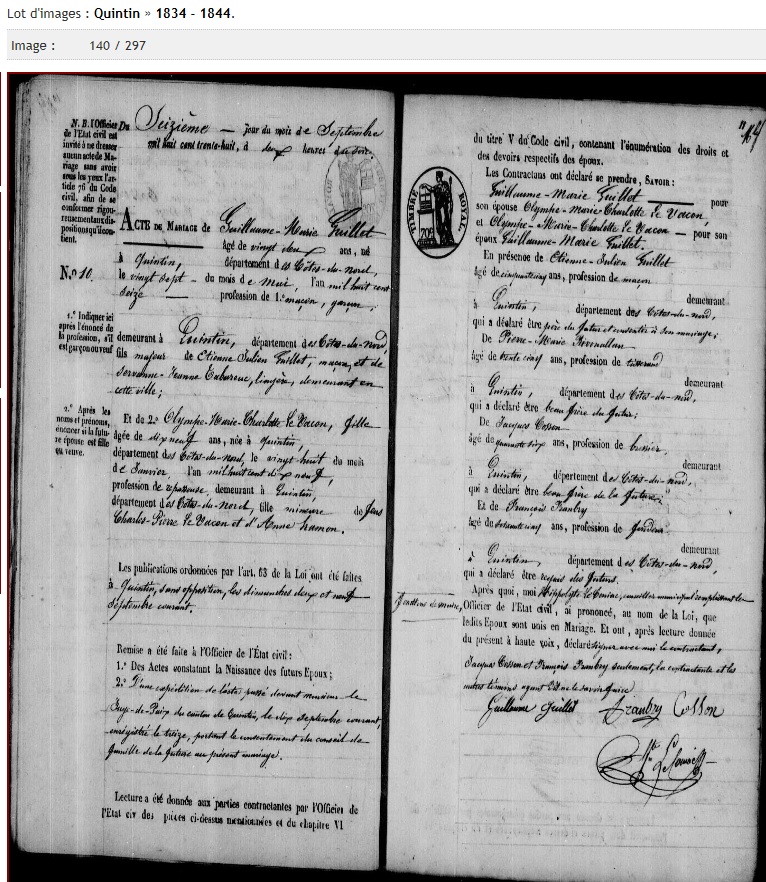 Lot d'images : Quintin » 1834 - 1844.
Image : 140 / 297
N. B. l'Officier
de l'Etat civil est
invité à ne dresser
aucun acte de Ma-
riage sans avoir
sous les yeux l'ar-
ticle 76 du Code
civil, afin de se
conformer rigou-
reusement aux dis-
positions qu'il con-
tient.
N.º 10.
1.º Indiquer ici
après l'énoncé de
la profession, s'il
est garçon ou veuf
2.º Après les
noms et prénoms,
énoncer si la futu-
re épouse est fille
ou veuve.
Du Seizième — jour du mois de Septembre
mil huit cent trente-huit, à deux heures du soir.
ACTE DE MARIAGE de Guillaume-Marie Guillot
âgé de vingt deux ans, né
à Quintin, département des Côtes-du-nord,
le vingt sept - du mois de Mai, l'an mil huit cent
seize — profession de 1.º maçon, garçon;
demeurant à Quintin, département des Côtes-du-Nord,
fils majeur de Etienne Julien Guillot, maçon, et de
Servanne-Jeanne lingère, demeurant en
cette ville;
Et de 2.º Olympe-Marie-Charlotte Le Vacon, fille
âgée de dix neuf ans, née à Quintin,
département des Côtes-du-Nord, le vingt huit du mois
de Janvier l'an mil huit cent dix neuf,
profession de repasseuse, demeurant à Quintin,
département des Côtes-du-Nord, fille mineure de feus
Charles-Pierre Le Vacon et d'Anne hamon.
Les publications ordonnées par l'art. 63 de la Loi ont été faites
à Quintin, sans opposition, les dimanches deux et neuf
septembre courant.
Remise a été faite à l'Officier de l'État civil :
1.º Des Actes constatant la Naissance des futurs Epoux;
2.º D'une expédition de l'acte passé devant monsieur le
Juge-de-Paix du canton de Quintin, le dix septembre courant,
enregistré le treize, portant le consentement du conseil de
famille de la future au présent mariage.
Lecture a été donnée aux parties contractantes par l'Officier de
l'Etat civ des pièces ci-dessus mentionnées et du chapitre VI
TIMBRE ROYAL.
du titre V du Code civil, contenant l'énumération des droits et
des devoirs respectifs des époux.
Les Contractans ont déclaré se prendre, SAVOIR :
Guillaume-Marie Guillot — pour
son épouse Olympe-Marie-Charlotte Le Vacon,
et Olympe-Marie-Charlotte Le Vacon — pour son
époux Guillaume-Marie Guillot.
En présence de Etienne-Julien Guillot
âgé de cinquante cinq ans, profession de maçon
demeurant
à Quintin, département des Côtes-du-nord,
qui a déclaré être père du futur et consentir à son mariage;
De Pierre-Marie
âgé de trente cinq ans, profession de tisserand
demeurant
à Quintin, département des Côtes-du-nord,
qui a déclaré être beau frère du futur;
De Jacques Cosson
âgé de quarante six ans, profession de
demeurant
à Quintin, département des Côtes-du-nord,
qui a déclaré être beau frère de la future;
Et de François Frambry
âgé de soixante cinq ans, profession de
demeurant
à Quintin, département des Côtes-du-nord,
qui a déclaré être des futurs.
Après quoi, moi Hippolyte conseiller municipal remplissant les
fonctions de maire, Officier de l'Etat civil, ai prononcé, au nom de la Loi, que
lesdits Epoux sont unis en Mariage. Et ont, après lecture donnée
du présent à haute voix, déclaré signer avec moi le contractant,
Jacques Cosson et François Frambry seulement, la contractante et les
autres témoins ayant dit ne le savoir faire
Guillaume guillot Frambry Cosson